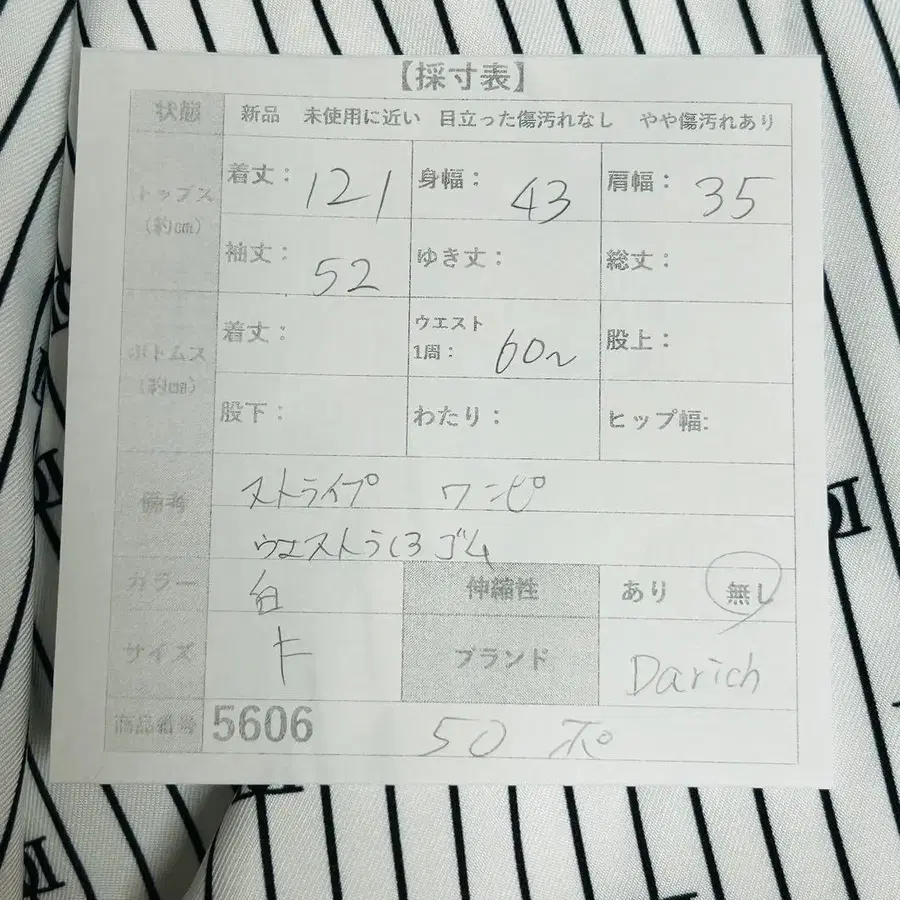 【採寸表】
状態 新品 未使用に近い 目立った傷汚れなし やや傷汚れあり
トップス
(約cm)
着丈: 121 身幅: 43 肩幅: 35
袖丈: 52 ゆき丈: 総丈:
ボトムス
(約cm)
着丈: ウエスト
1周: 60~ 股上:
股下: わたり: ヒップ幅:
備考 ストライプ ワンピ
ウエストうしろゴム
カラー 白 伸縮性 あり 無し
サイズ ブランド Darich
商品番号 5606 50 ポ